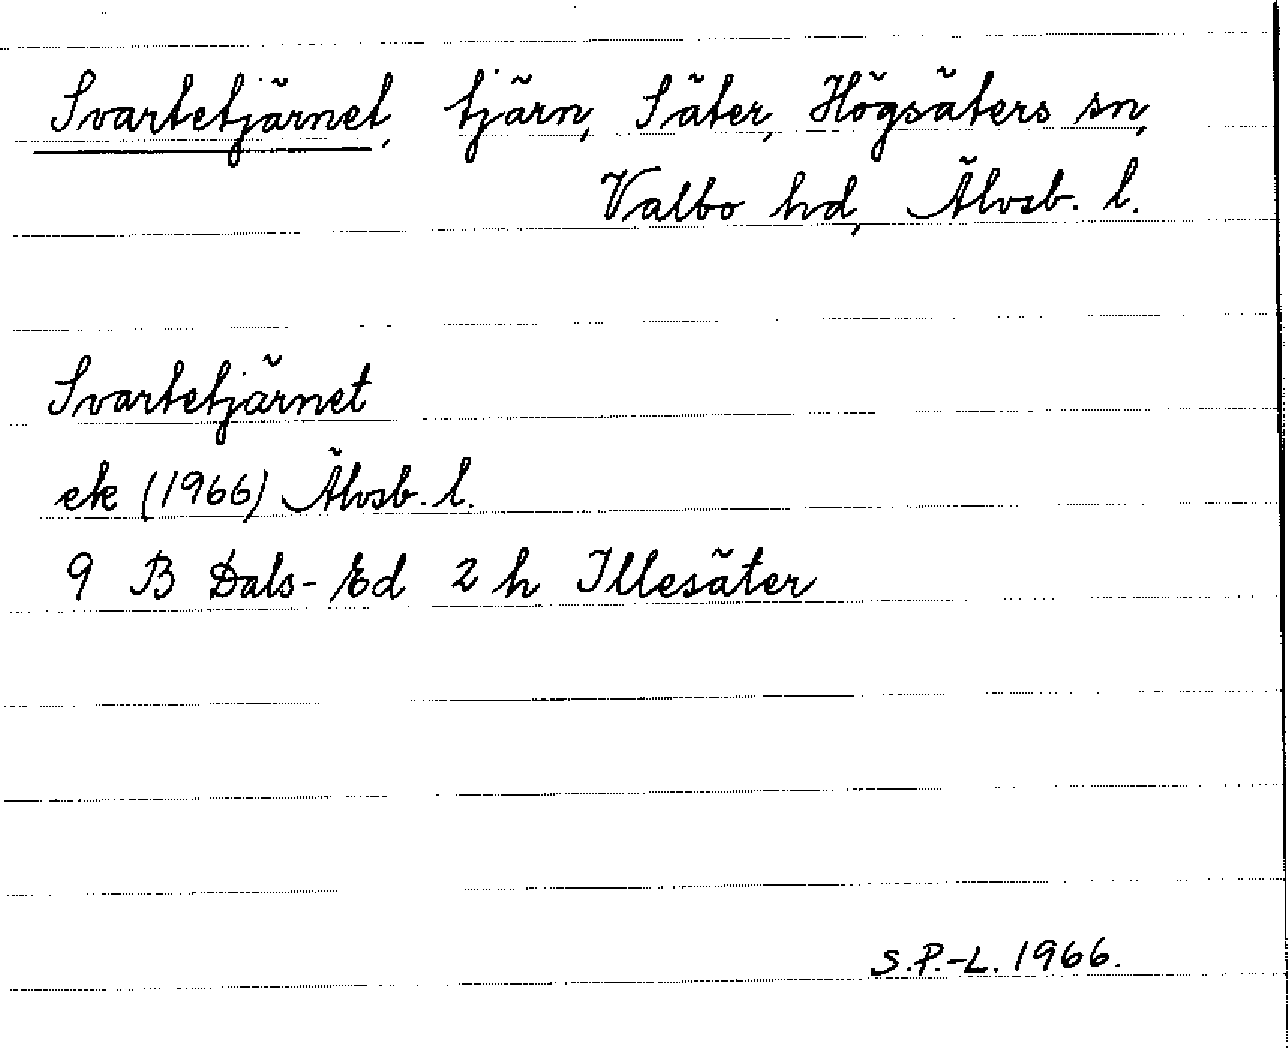 Svartetjärnet, tjärn, Säter, Högsäters sn,
Valbo hd, Älvsb. l.
Svartetjärnet
ek (1966) Älvsb. l.
9 B Dals-Ed 2 h Illesäter
S.P.-L. 1966.